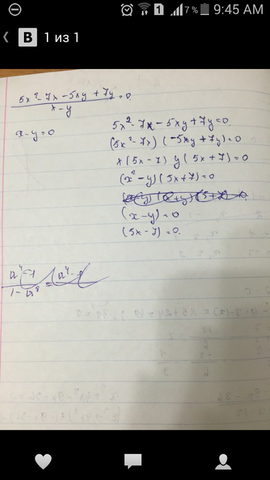 7% 9:45 AM
B 1 из 1
5x²-7x-5xy+7y/x-y=0
x-y=0
5x²-7x-5xy+7y=0
(5x²-7x)(-5xy+7y)=0
x(5x-7) y(5x+7)=0
(x²-y)(5x+7)=0
(x-y)=0
(5x-7)=0